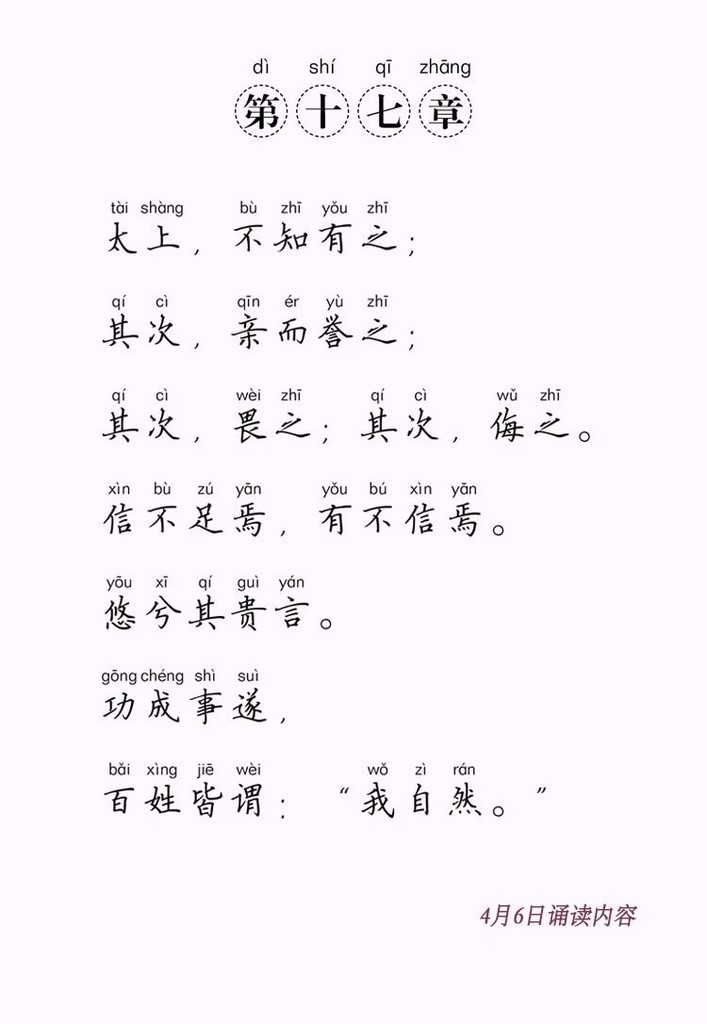 dì shí qī zhāng
第十七章
tài shàng bù zhī yǒu zhī
太上，不知有之；
qí cì qīn ér yù zhī
其次，亲而誉之；
qí cì wèi zhī qí cì wǔ zhī
其次，畏之；其次，侮之。
xìn bù zú yān yǒu bú xìn yān
信不足焉，有不信焉。
yōu xī qí guì yán
悠兮其贵言。
gōng chéng shì suì
功成事遂，
bǎi xìng jiē wèi wǒ zì rán
百姓皆谓：“我自然。”
4月6日诵读内容